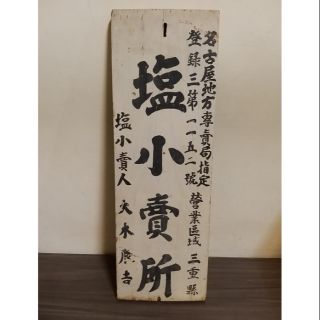 名古屋地方專賣局指定
登録三第一一五二號 營業區域 三重縣
塩小賣所
塩小賣人 大木廣吉